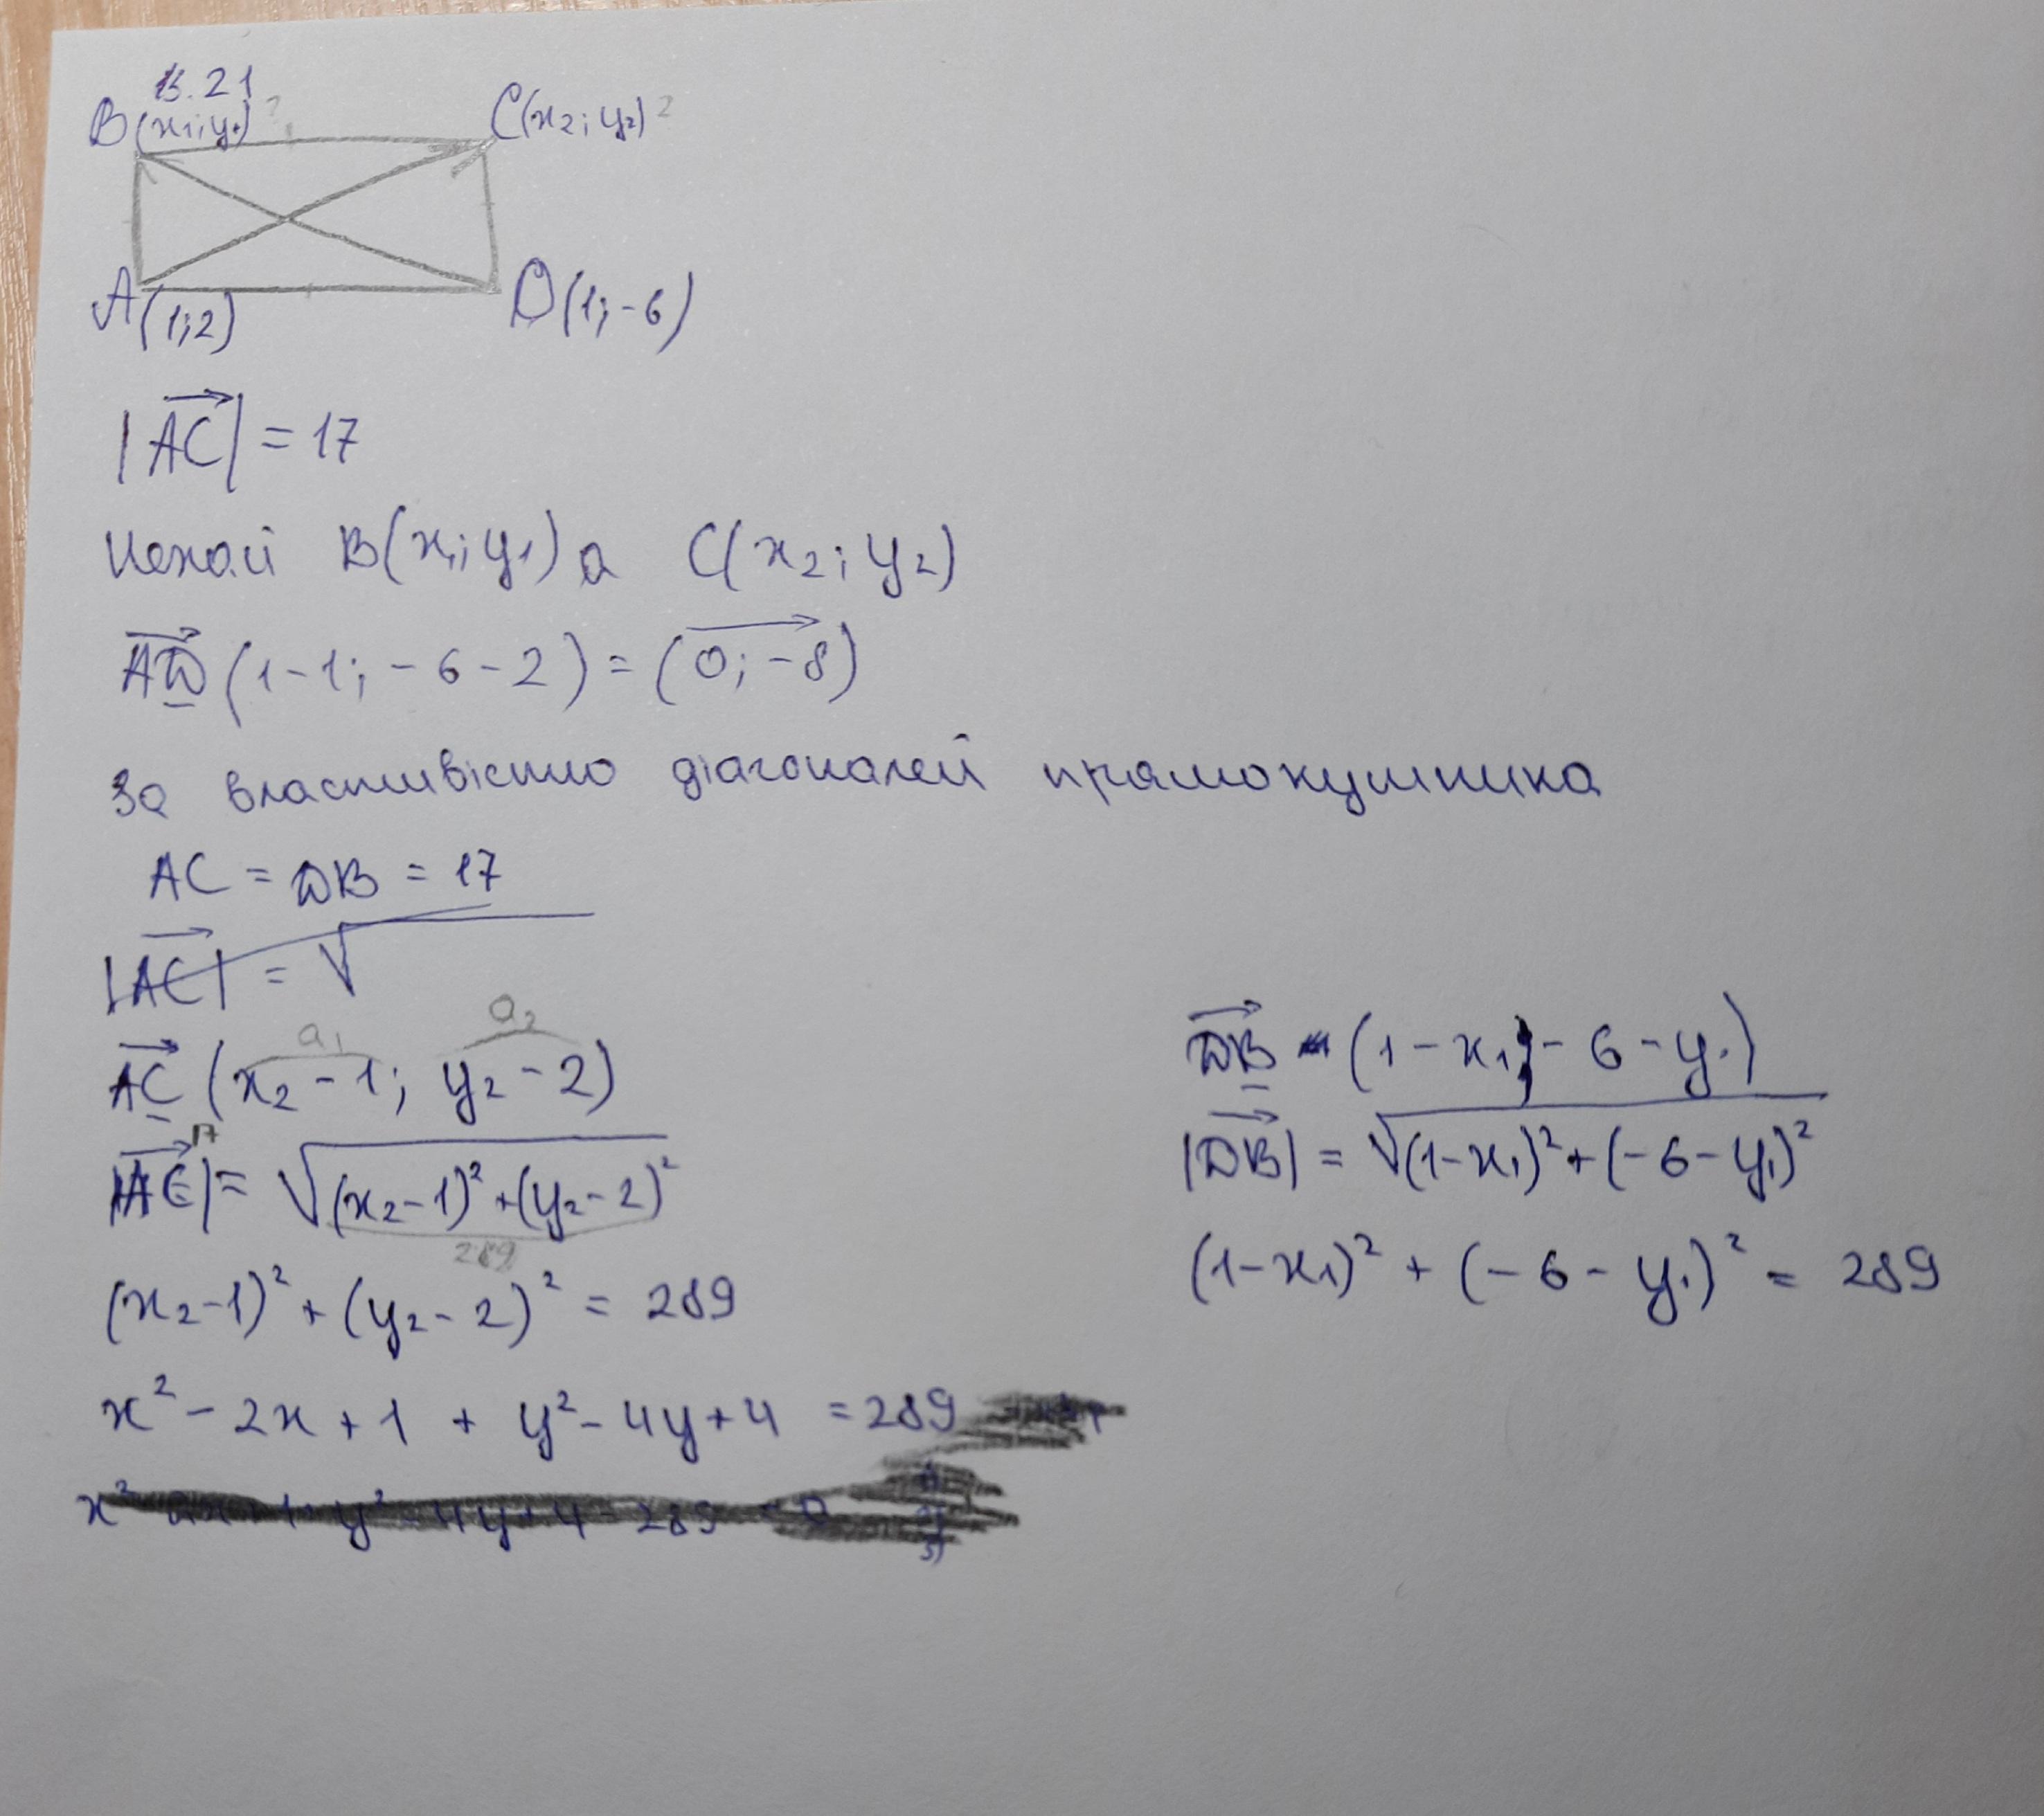 13.21
B(x₁; y₁)? C(x₂; y₂)?
A(1; 2) D(1; -6)
|AC| = 17
Нехай B(x₁; y₁) а C(x₂; y₂)
AD (1-1; -6-2) = (0; -8)
За властивістю діагоналей прямокутника
AC = DB = 17
|AC| = √
a₁ a₂
AC (x₂-1; y₂-2)
17
|AC| = √(x₂-1)² + (y₂-2)²
289
(x₂-1)² + (y₂-2)² = 289
x² - 2x + 1 + y² - 4y + 4 = 289
x² - 2x + 1 + y² - 4y + 4 - 289 = 0
DB (1-x₁; -6-y₁)
|DB| = √(1-x₁)² + (-6-y₁)²
(1-x₁)² + (-6-y₁)² = 289